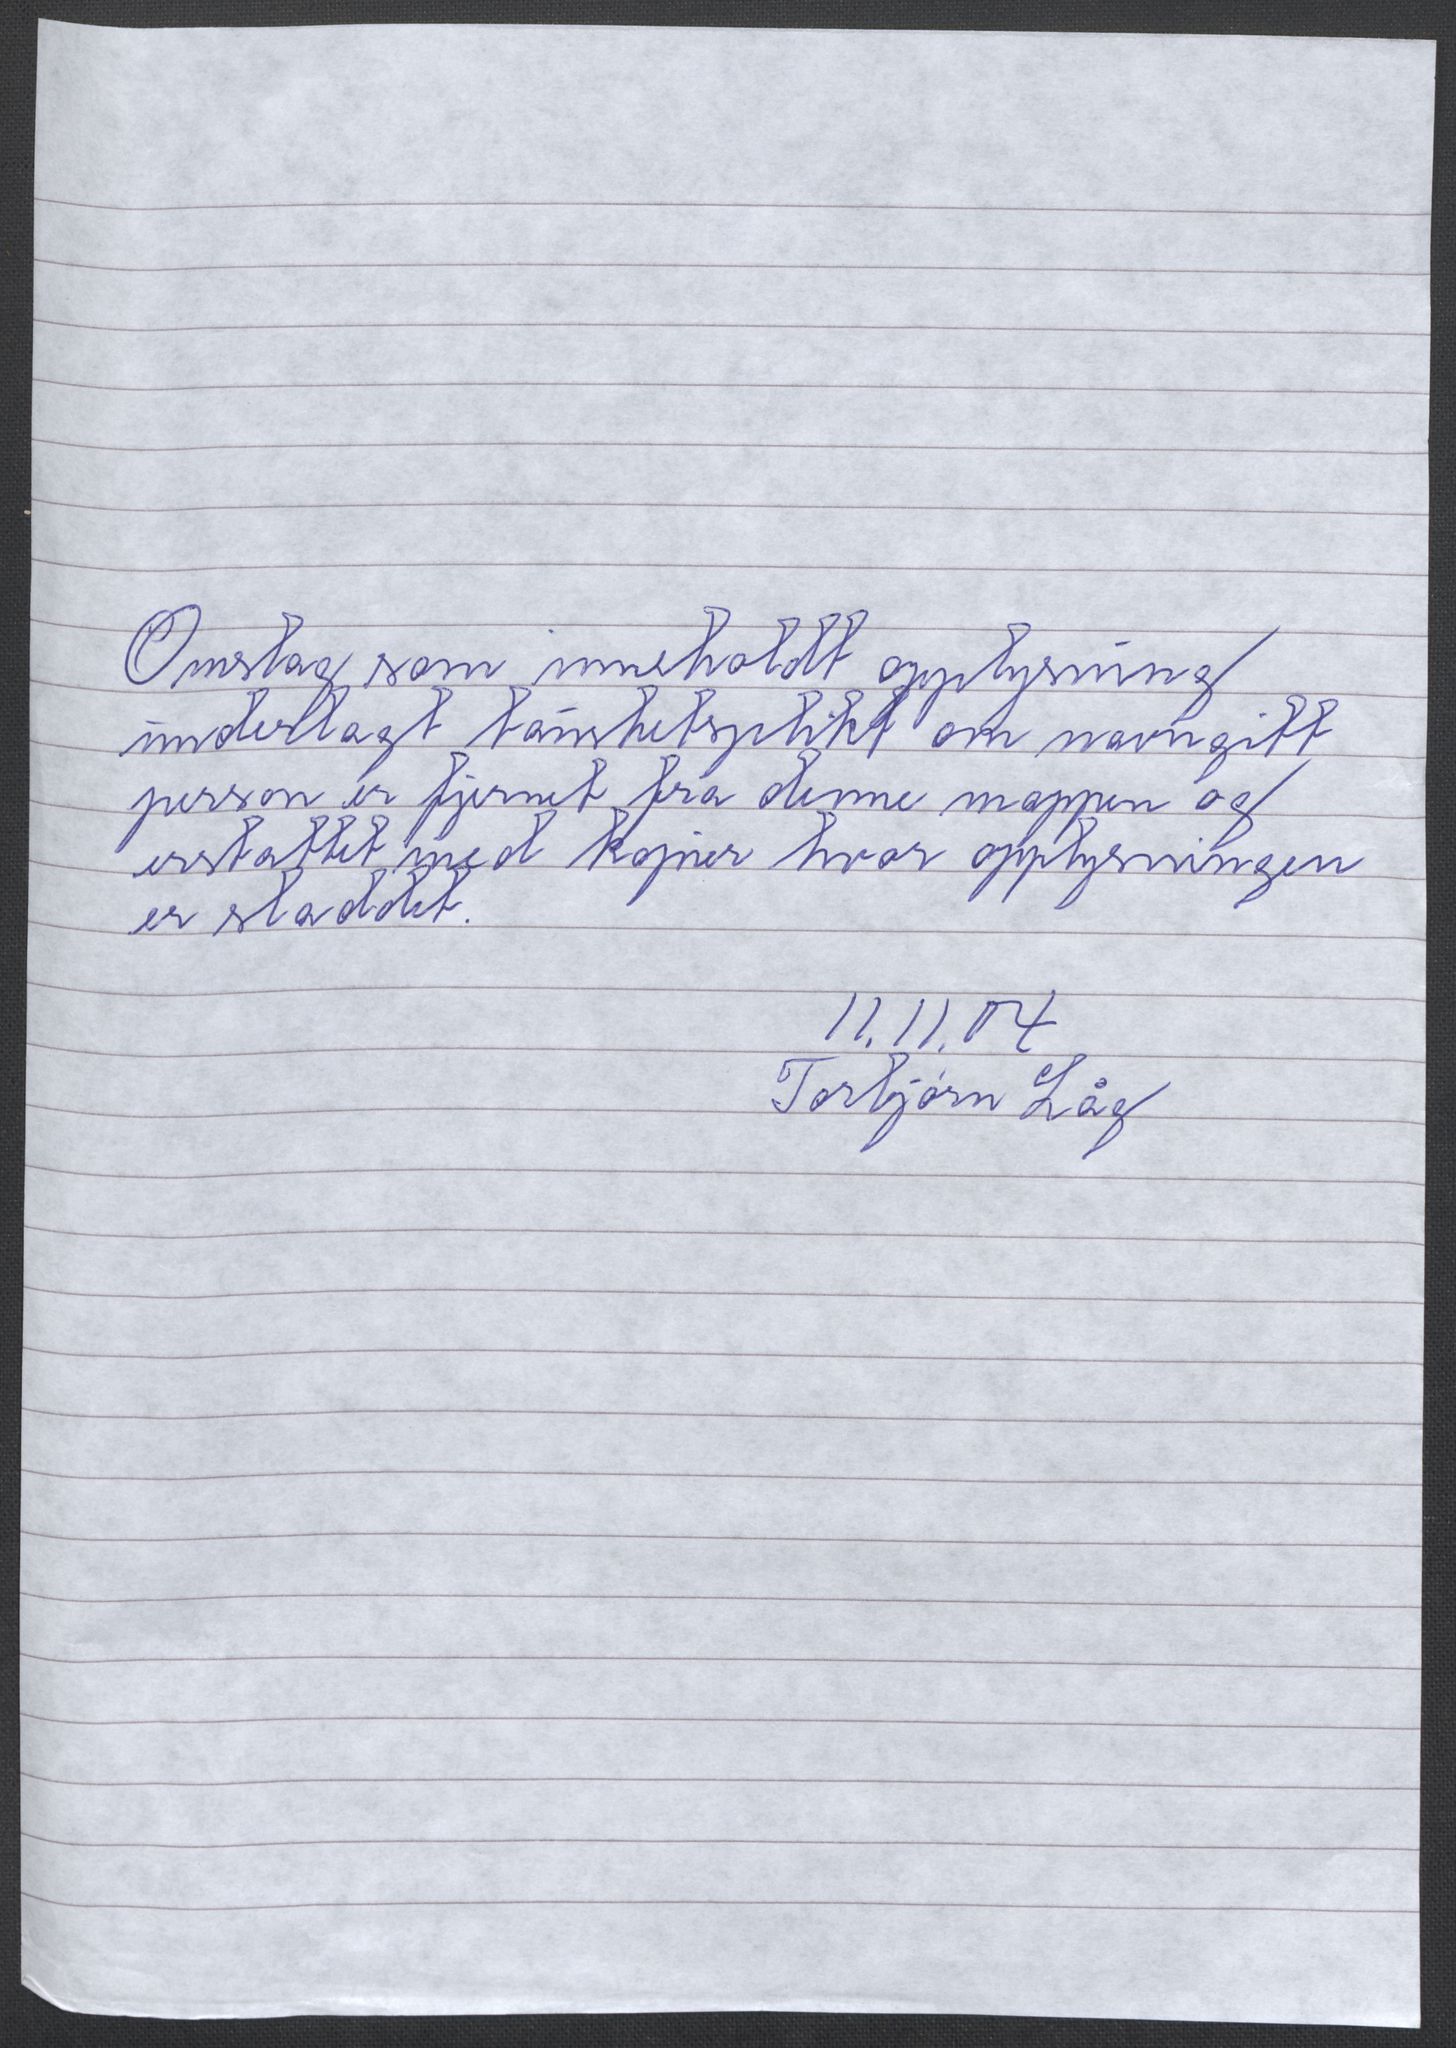 Omslag som inneholdt opplysning
underlagt taushetsplikt om navngitt
person er fjernet fra denne mappen og
erstattet med kopier hvor opplysningen
er sladdet.
11.11.04
Torbjørn Låg